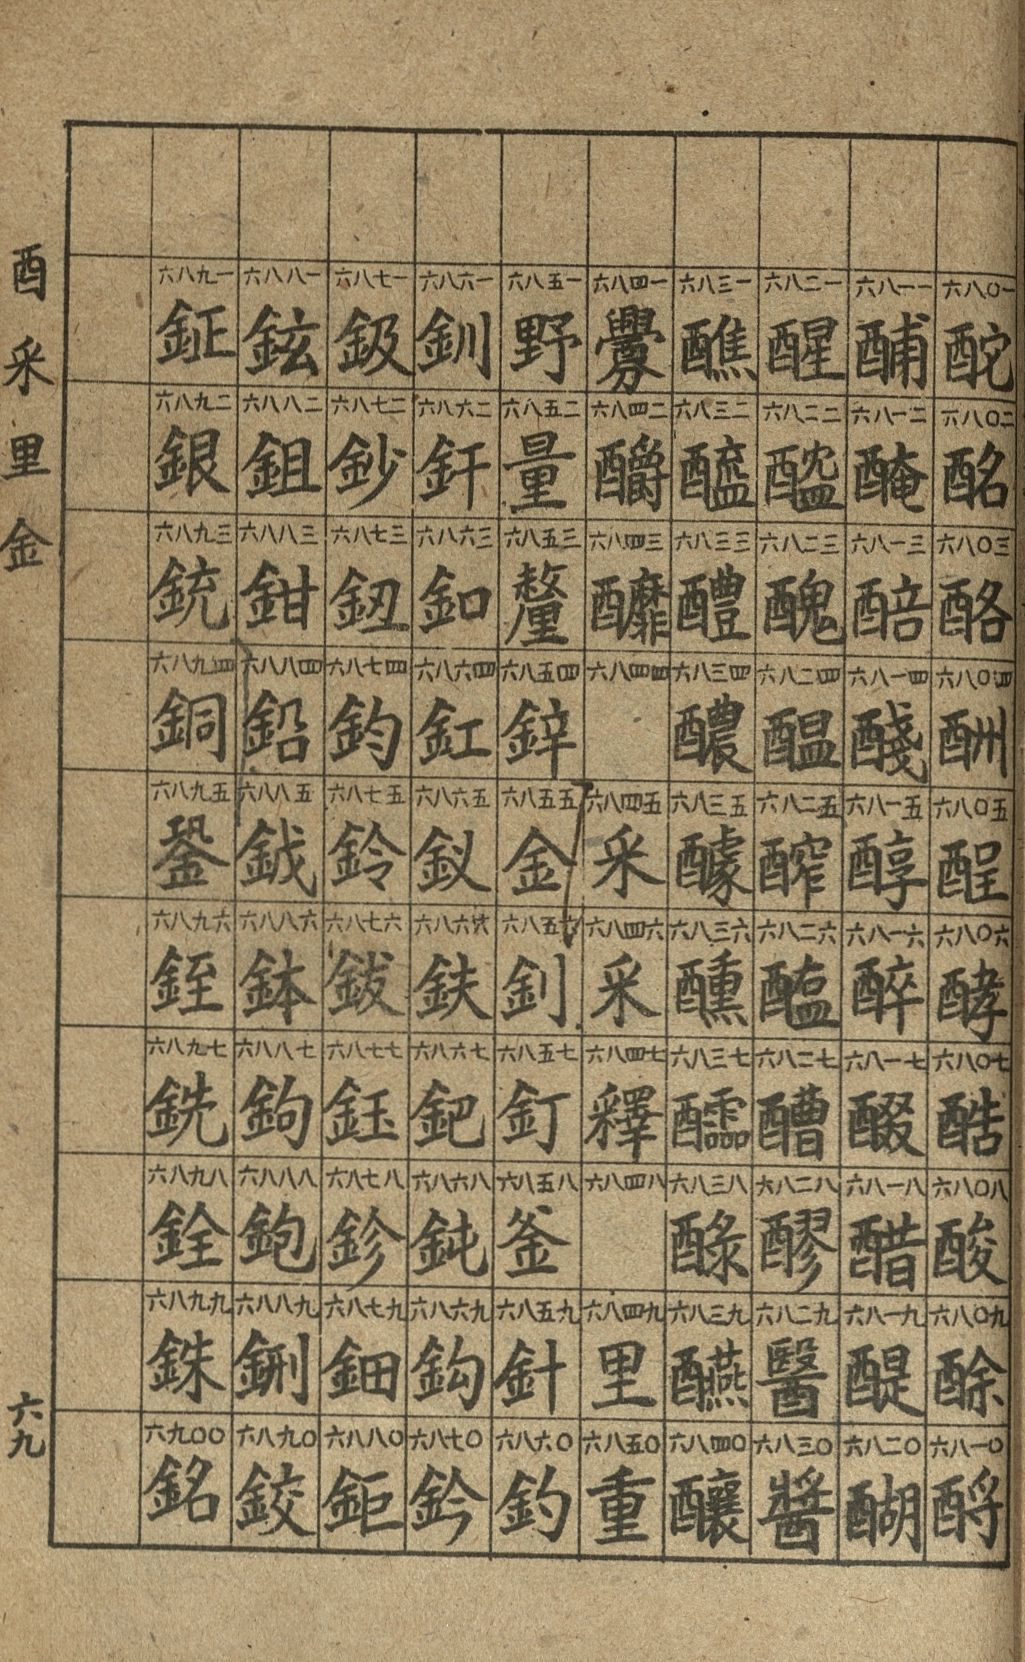 酉釆里金
六九
六八〇一 酡
六八〇二 酩
六八〇三 酪
六八〇四 酬
六八〇五 酲
六八〇六 酵
六八〇七 酷
六八〇八 酸
六八〇九 酴
六八一〇 酹
六八一一 酺
六八一二 醃
六八一三 醅
六八一四 醆
六八一五 醇
六八一六 醉
六八一七 醊
六八一八 醋
六八一九 醍
六八二〇 醐
六八二一 醒
六八二二 醓
六八二三 醜
六八二四 醞
六八二五 醡
六八二六 醢
六八二七 醩
六八二八 醪
六八二九 醫
六八三〇 醬
六八三一 醮
六八三二 醯
六八三三 醴
六八三四 醲
六八三五 醵
六八三六 醺
六八三七 醽
六八三八 醁
六八三九 醼
六八四〇 釀
六八四一 釁
六八四二 釂
六八四三 釄
六八四四
六八四五 釆
六八四六 采
六八四七 釋
六八四八
六八四九 里
六八五〇 重
六八五一 野
六八五二 量
六八五三 釐
六八五四 鋅
六八五五 金
六八五六 釗
六八五七 釘
六八五八 釜
六八五九 針
六八六〇 釣
六八六一 釧
六八六二 釬
六八六三 釦
六八六四 釭
六八六五 釵
六八六六 鈇
六八六七 鈀
六八六八 鈍
六八六九 鈎
六八七〇 鈐
六八七一 鈒
六八七二 鈔
六八七三 鈕
六八七四 鈞
六八七五 鈴
六八七六 鈸
六八七七 鈺
六八七八 鉁
六八七九 鈿
六八八〇 鉅
六八八一 鉉
六八八二 鉏
六八八三 鉗
六八八四 鉛
六八八五 鉞
六八八六 鉢
六八八七 鉤
六八八八 鉋
六八八九 鉶
六八九〇 鉸
六八九一 鉦
六八九二 銀
六八九三 銃
六八九四 銅
六八九五 銎
六八九六 銍
六八九七 銑
六八九八 銓
六八九九 銖
六九〇〇 銘